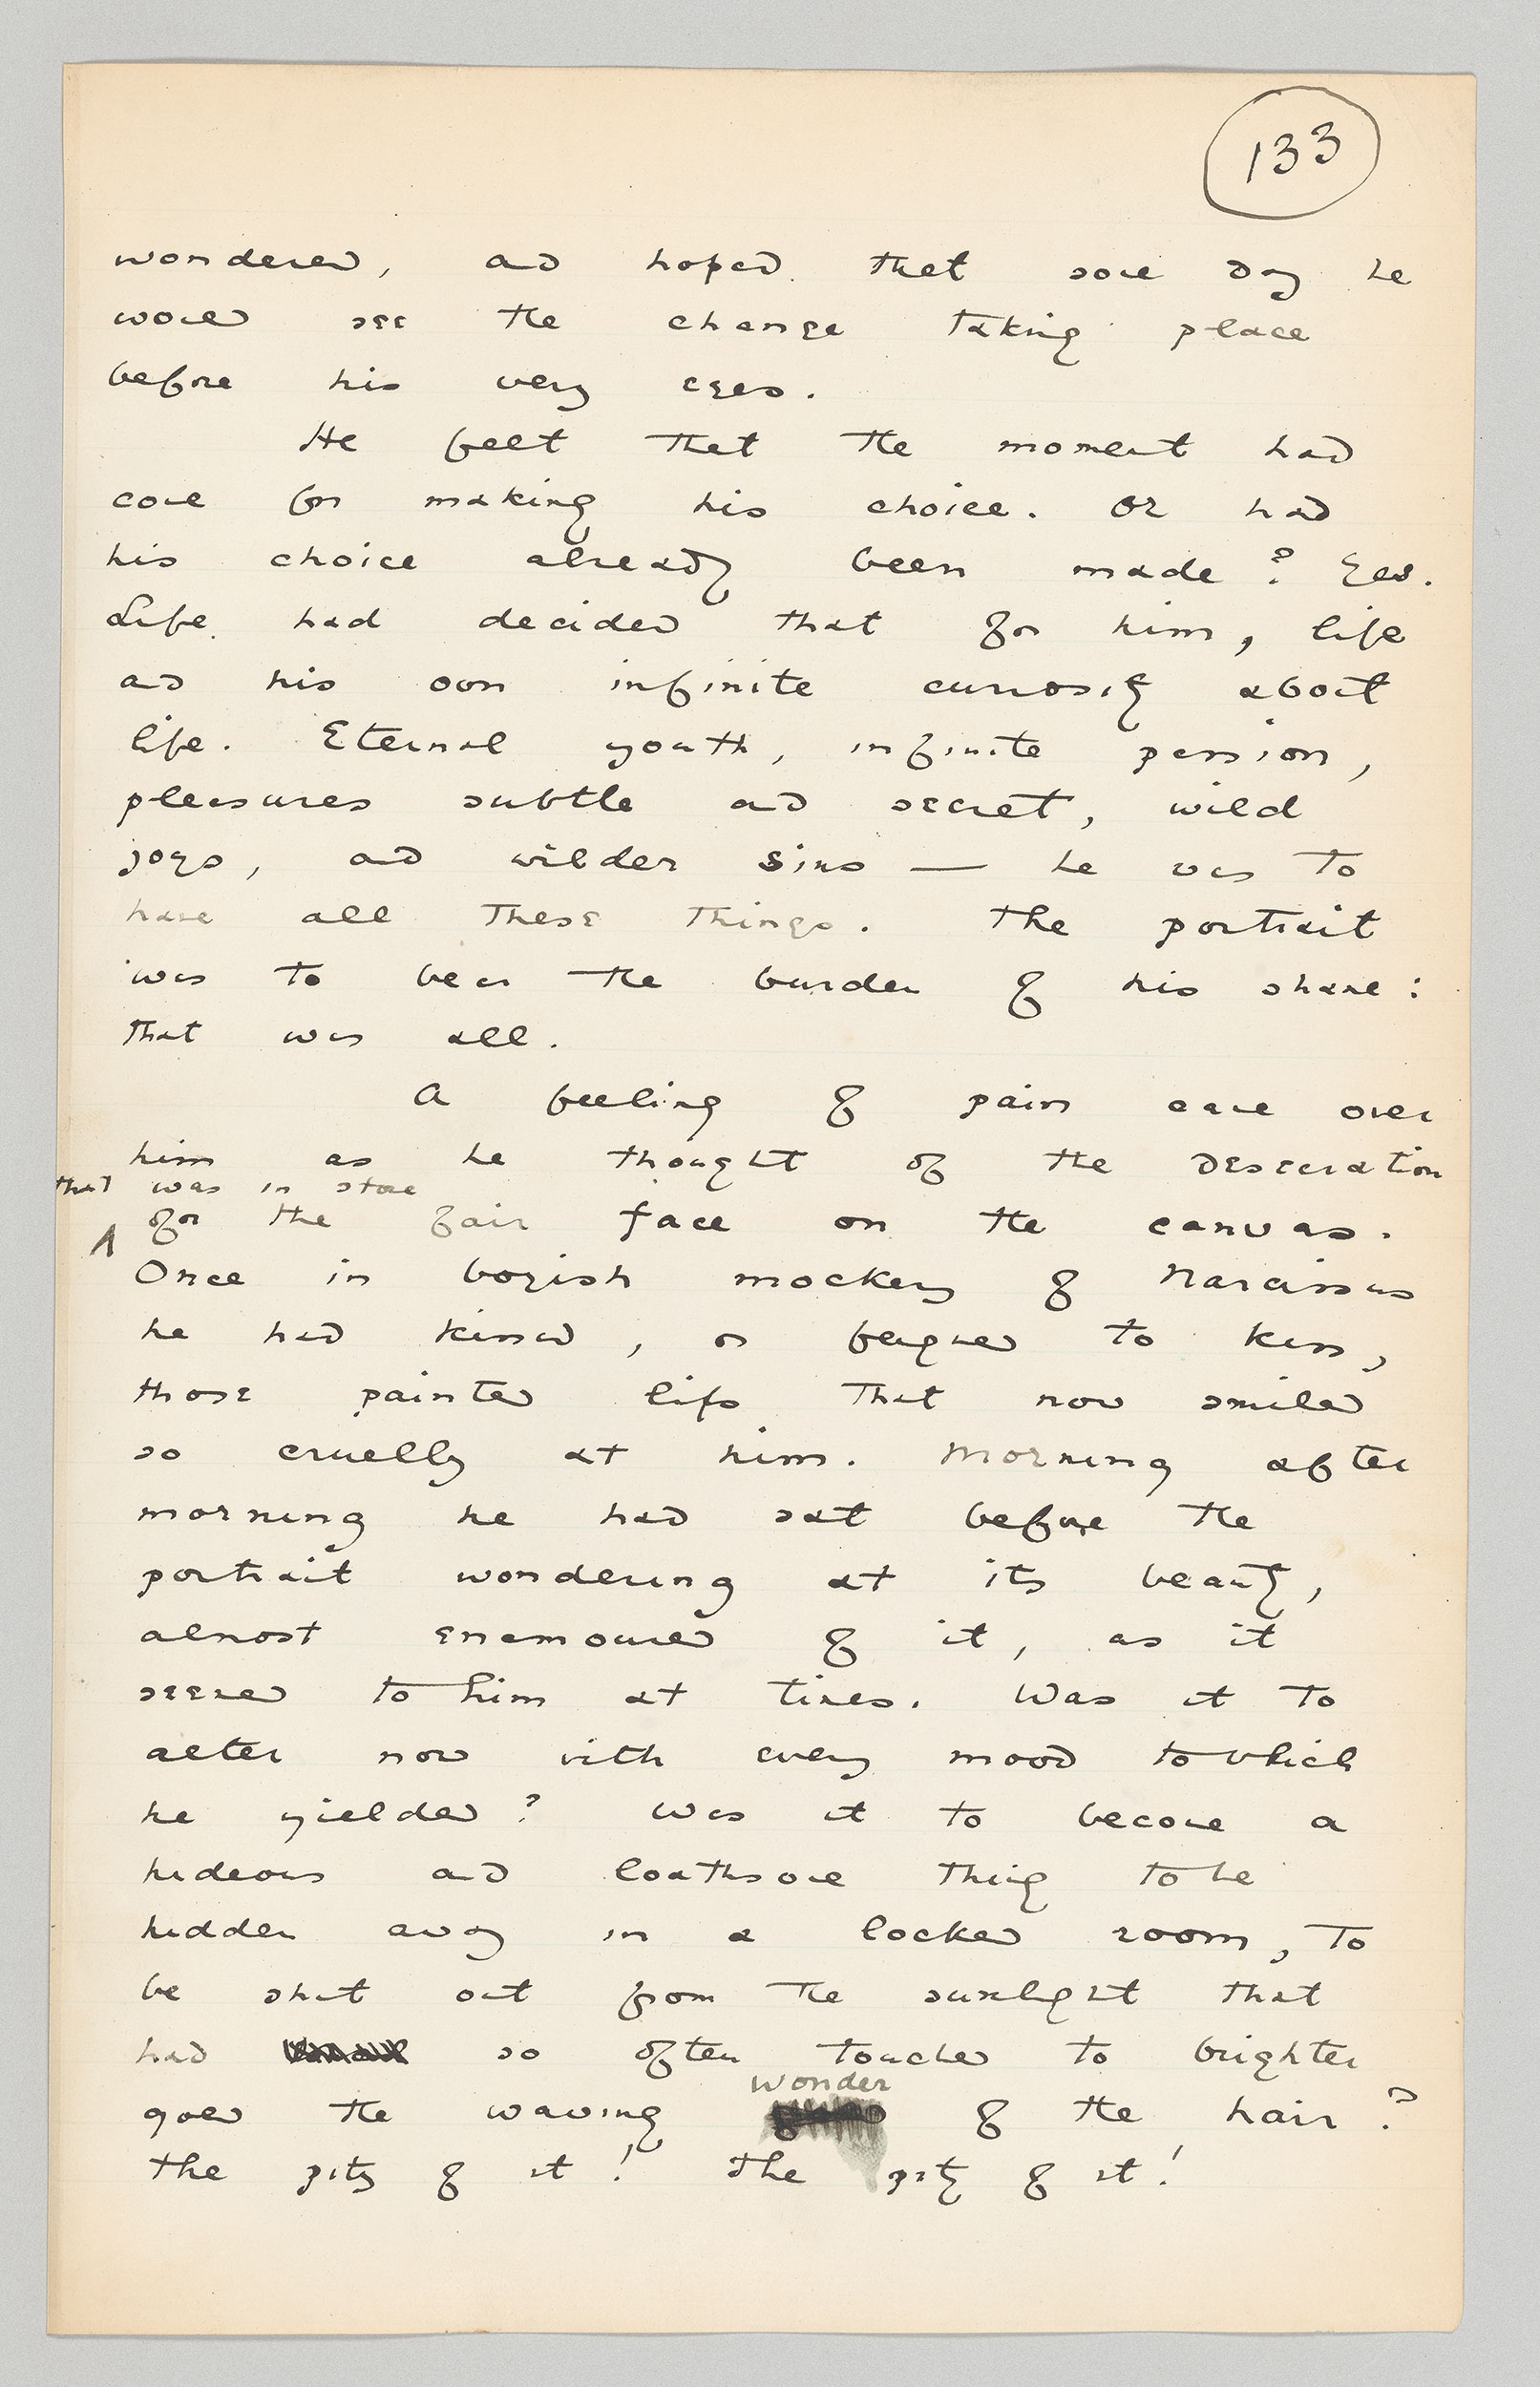 133
wondered, and hoped that some day he
would see the change taking place
before his very eyes.
He felt that the moment had
come for making his choice. Or had
his choice already been made? Yes.
Life had decided that for him, life
and his own infinite curiosity about
life. Eternal youth, infinite passion,
pleasures subtle and secret, wild
joys, and wilder sins — he was to
have all these things. The portrait
was to bear the burden of his shame:
that was all.
A feeling of pain came over
him as he thought of the desecration
that was in store
for the fair face on the canvas.
Once in boyish mockery of Narcissus
he had kissed, or feigned to kiss,
those painted lips that now smiled
so cruelly at him. Morning after
morning he had sat before the
portrait wondering at its beauty,
almost enamoured of it, as it
seemed to him at times. Was it to
alter now with every mood to which
he yielded? Was it to become a
hideous and loathsome thing to be
hidden away in a locked room, to
be shut out from the sunlight that
had so often touched to brighter
wonder
gold the waving of the hair?
The pity of it! The pity of it!